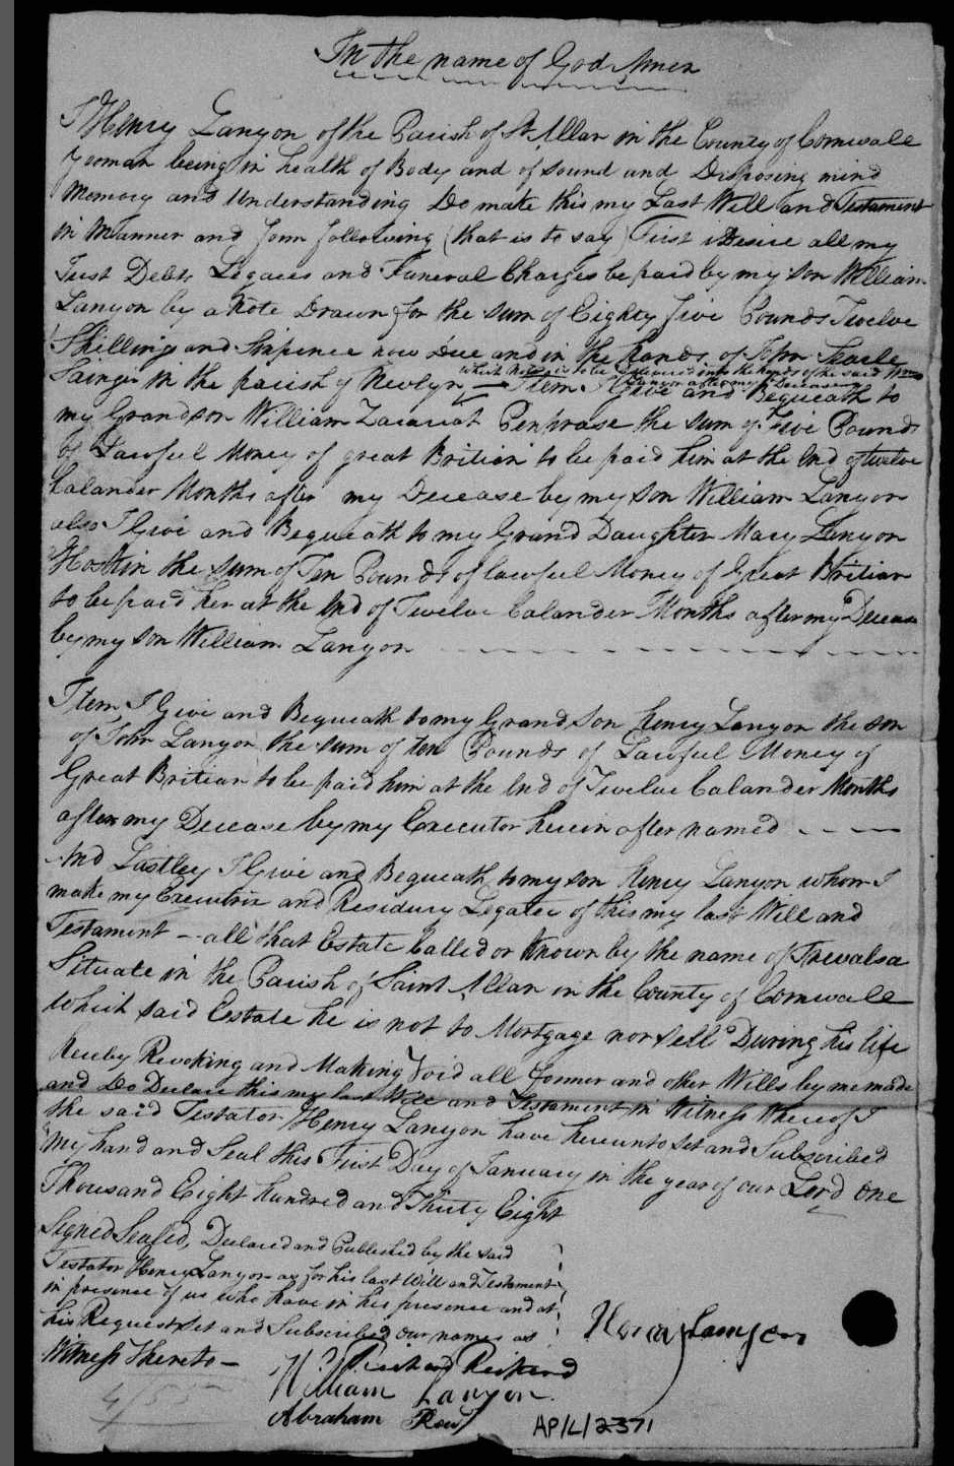 In the name of God Amen
I Henry Lanyon of the Parish of St Allan in the County of Cornwall
Yeoman being in health of Body and of sound and Disposing mind
Memory and Understanding Do make this my Last Will and Testament
in Manner and form following (that is to say) First i Desire all my
Just Debts Legacies and Funeral Charges be paid by my son William
Lanyon by a Note Drawn for the sum of Eighty five Pounds Twelve
Shillings and Sixpence now due and in the hands of John Searle
which Note is to be Delivered into the hands of the said Wm
Lanyon after my Decease
in the parish of Newlyn — Item I Give and Bequeath to
my Grandson William Penprase the sum of Five Pounds
of Lawful Money of great Britian to be paid him at the End of twelve
Calander Months after my Decease by my son William Lanyon
also I Give and Bequeath to my Grand Daughter Mary Lanyon
the sum of Ten Pounds of lawful Money of Great Britian
to be paid her at the End of Twelve Calander Months after my Decease
by my son William Lanyon
Item I Give and Bequeath to my Grand Son Henry Lanyon the son
of John Lanyon the sum of ten Pounds of Lawful Money of
Great Britian to be paid him at the End of Twelve Calander Months
after my Decease by my Executor herein after named
And Lastley I Give and Bequeath to my son Henry Lanyon whom I
make my Executrix and Residury Legatee of this my last Will and
Testament — all that Estate Called or Known by the name of Trevalsa
Situate in the Parish of Saint Allan in the County of Cornwall
Which said Estate he is not to Mortgage nor sell During his life
Hereby Revoking and Making Void all former and other Wills by me made
and Do Declare this my last Will and Testament in Witness Whereof I
the said Testator Henry Lanyon have hereunto set and Subscribed
my hand and Seal this First Day of January in the year of our Lord one
Thousand Eight hundred and Thirty Eight
Signed Sealed, Declared and Published by the said
Testator Henry Lanyon as for his last Will and Testament
in presence of us who have in his presence and at
his Request set and Subscribed our names as
Witness Thereto —
Henry Lanyon
Richard
William Lanyon
Abraham Row
AP/L/2371